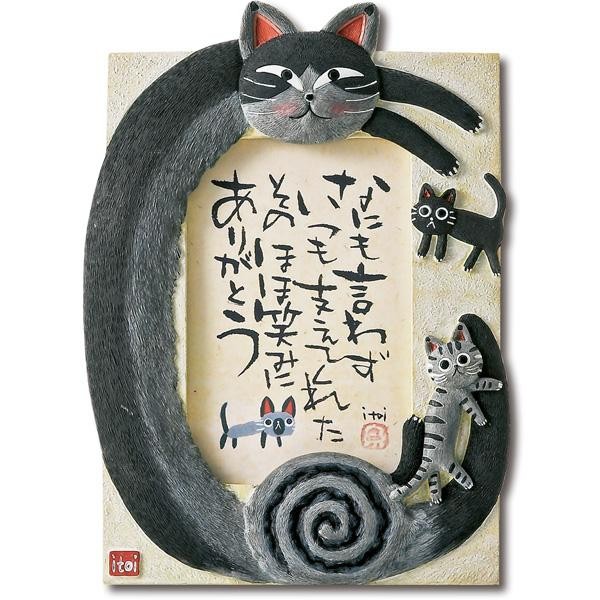 なにも言わず
いつも支えてくれた
そのほほ笑みに
ありがとう
itoi
itoi